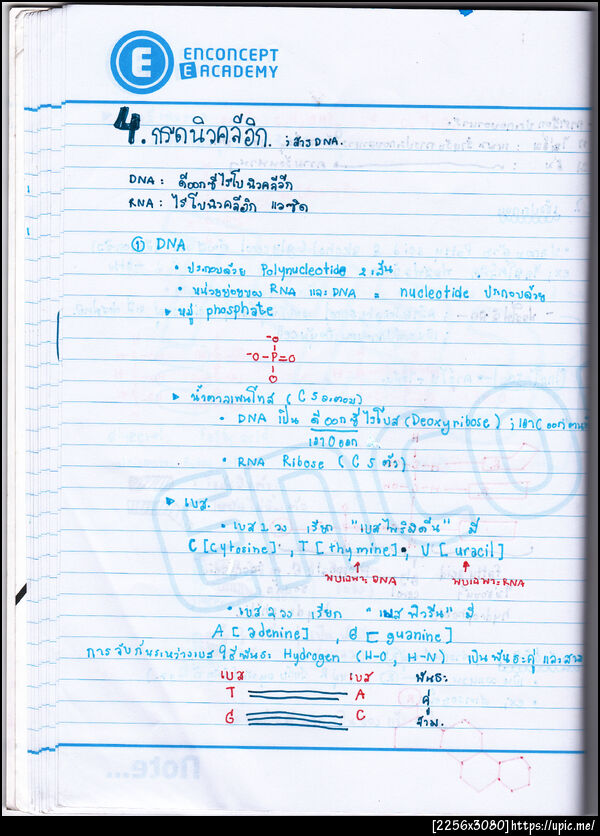 E ENCONCEPT
E ACADEMY
4. กรดนิวคลีอิก ; สาร DNA.
DNA : ดีออกซีไรโบนิวคลีอิก
RNA : ไรโบนิวคลีอิก แอซิด
① DNA
• ประกอบด้วย Polynucleotide 2 เส้น
• หน่วยย่อยของ RNA และ DNA = nucleotide ประกอบด้วย
▸ หมู่ phosphate
⁻O
⁻O–P=O
O
▸ น้ำตาลเพนโทส (C 5 อะตอม)
• DNA เป็น ดีออกซีไรโบส (Deoxyribose) ; เอา O ออก
เอา O ออก
• RNA Ribose (C 5 ตัว)
▸ เบส.
• เบส 1 วง เรียก "เบสไพริมิดีน" มี
C [cytosine] , T [thymine] , U [uracil]
พบเฉพาะ DNA พบเฉพาะ RNA
• เบส 2 วง เรียก "เบสพิวรีน" มี
A [adenine] , G [guanine]
การจับกันระหว่างเบส ใช้พันธะ Hydrogen (H-O, H-N) เป็นพันธะคู่ และสาม
เบส เบส พันธะ
T A คู่
G C สาม.
ENCO
Note...
[2256x3080]https://upic.me/